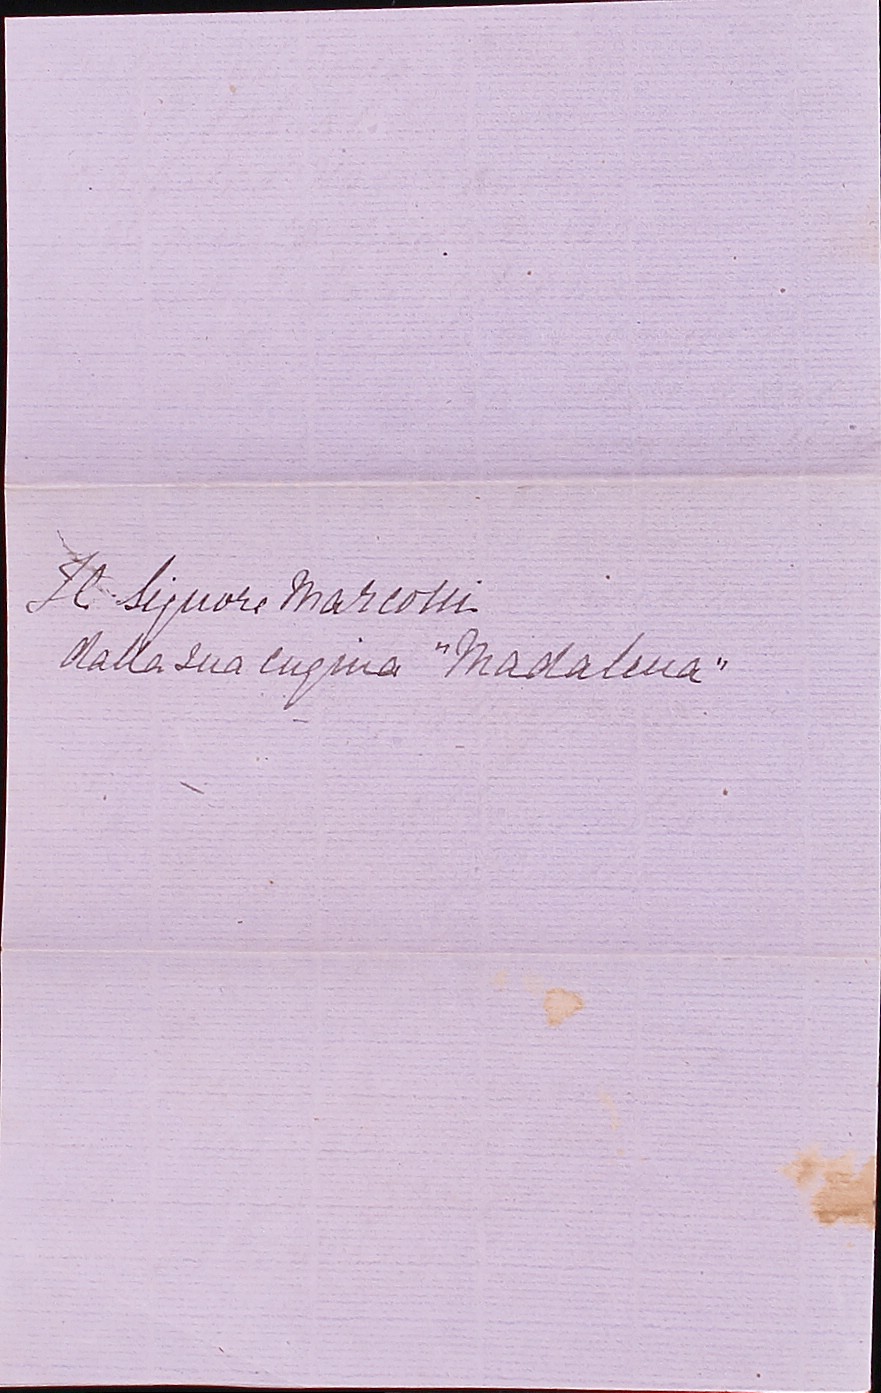 Il Signore Marcotti
dalla sua cugina "Madalena"